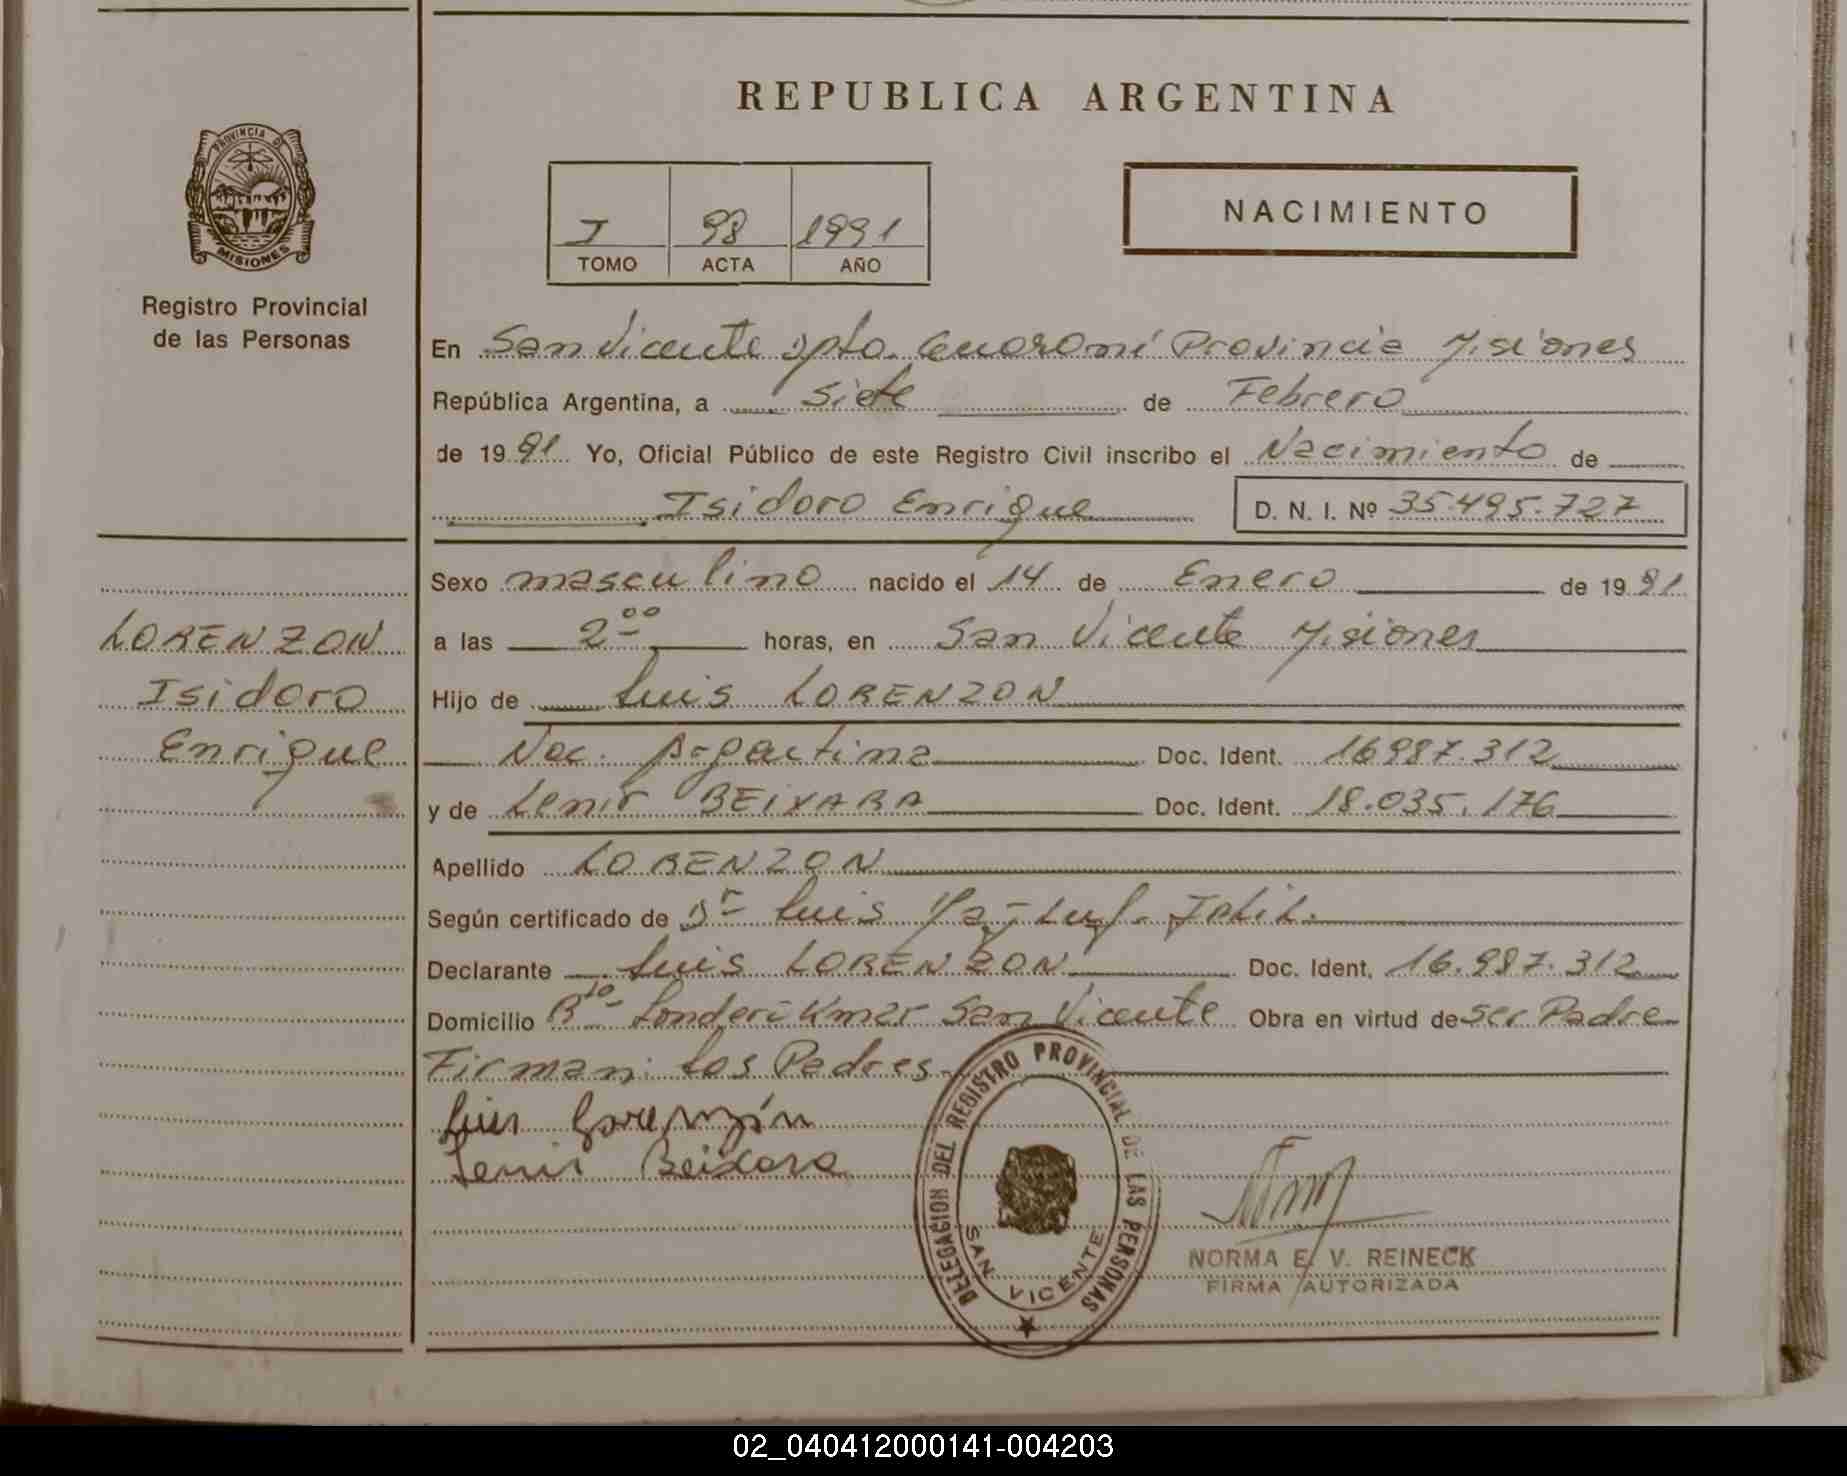 REPUBLICA ARGENTINA
PROVINCIA DE
MISIONES
Registro Provincial
de las Personas
I 98 1991
TOMO ACTA AÑO
NACIMIENTO
En San Vicente Dpto. Guaraní Provincia Misiones
República Argentina, a Siete de Febrero
de 1991 Yo, Oficial Público de este Registro Civil inscribo el Nacimiento de
Isidoro Enrique D. N. I. Nº 35.495.727
Sexo masculino nacido el 14 de Enero de 1991
a las 2⁰⁰ horas, en San Vicente Misiones
Hijo de Luis LORENZON
Nac. Argentina Doc. Ident. 16987.312
y de Lenir BEIXARA Doc. Ident. 18.035.176
Apellido LORENZON
Según certificado de Dr Luis
Declarante Luis LORENZON Doc. Ident. 16.987.312
Domicilio San Vicente Obra en virtud de Ser Padre
Firman: Los Padres
Luis Lorenzón
Lenir Beixara
LORENZON
Isidoro
Enrique
DELEGACION DEL REGISTRO PROVINCIAL DE LAS PERSONAS
SAN VICENTE
NORMA E. V. REINECK
FIRMA AUTORIZADA
02_040412000141-004203